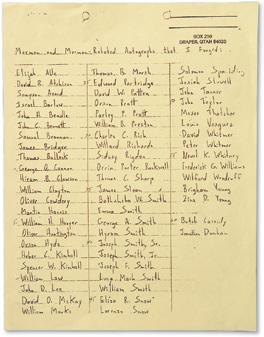 BOX 210
DRAPER, UTAH 84020
Mormon and Mormon Related Autographs that I Forged.
Elijah Able
David R. Atchison
Simpson Avard
Israel Barlow
John A. Bendle
John C. Bennett
Samuel Brannan
James Bridger
Thomas Bullock
George Q. Cannon
Hiram B. Clawson
William Clayton
Oliver Cowdery
Martin Harris
William H. Hooper
Oliver Huntington
Orson Hyde
Heber C. Kimball
Spencer W. Kimball
William Law
John D. Lee
David O. McKay
William Marks
Thomas B. Marsh
Edward Partridge
David W. Patten
Orson Pratt
Parley P. Pratt
William B. Preston
Charles C. Rich
Willard Richards
Sidney Rigdon
Orrin Porter Rockwell
Thomas C. Sharp
James Sloan
Bathsheba W. Smith
Emma Smith
George A. Smith
Hyrum Smith
Joseph Smith, Sr.
Joseph Smith, Jr.
Joseph F. Smith
Lucy Mack Smith
William Smith
Eliza R. Snow
Lorenzo Snow
Solomon Spalding
Josiah Stowell
John Taylor
Moses Thatcher
Louis Vasquez
David Whitmer
Peter Whitmer
Newel K. Whitney
Frederick G. Williams
Wilford Woodruff
Brigham Young
Zina D. Young
Butch Cassidy
Jonathan Dunham